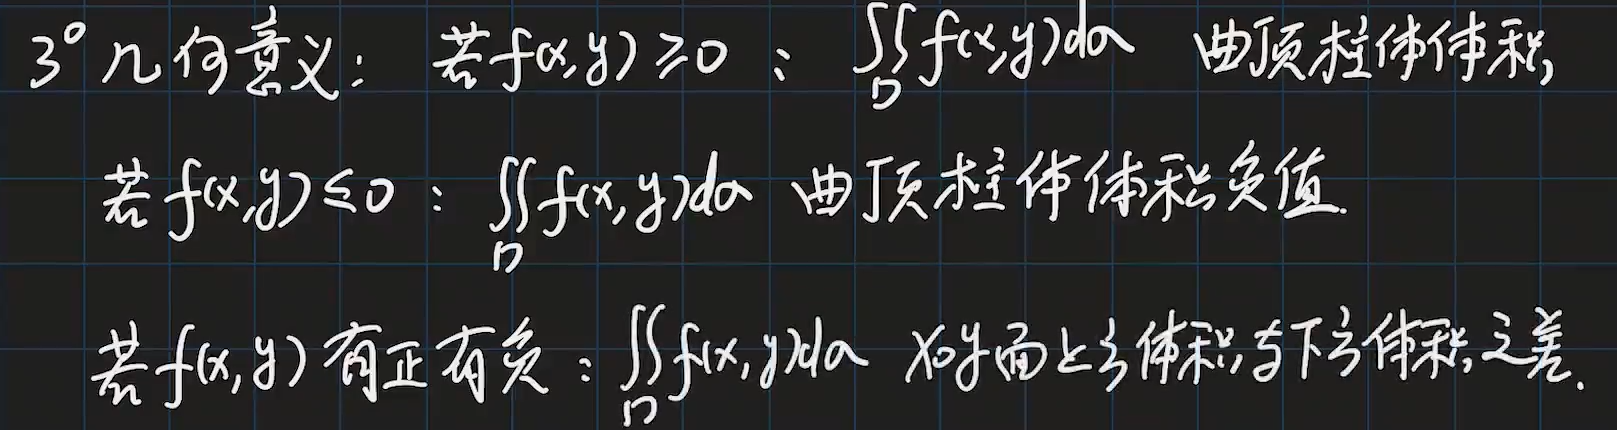 3° 几何意义: 若f(x,y)≥0 : ∬_D f(x,y)dσ 曲顶柱体体积,
若f(x,y)≤0 : ∬_D f(x,y)dσ 曲顶柱体体积负值.
若f(x,y)有正有负 : ∬_D f(x,y)dσ xoy面上方体积与下方体积之差.